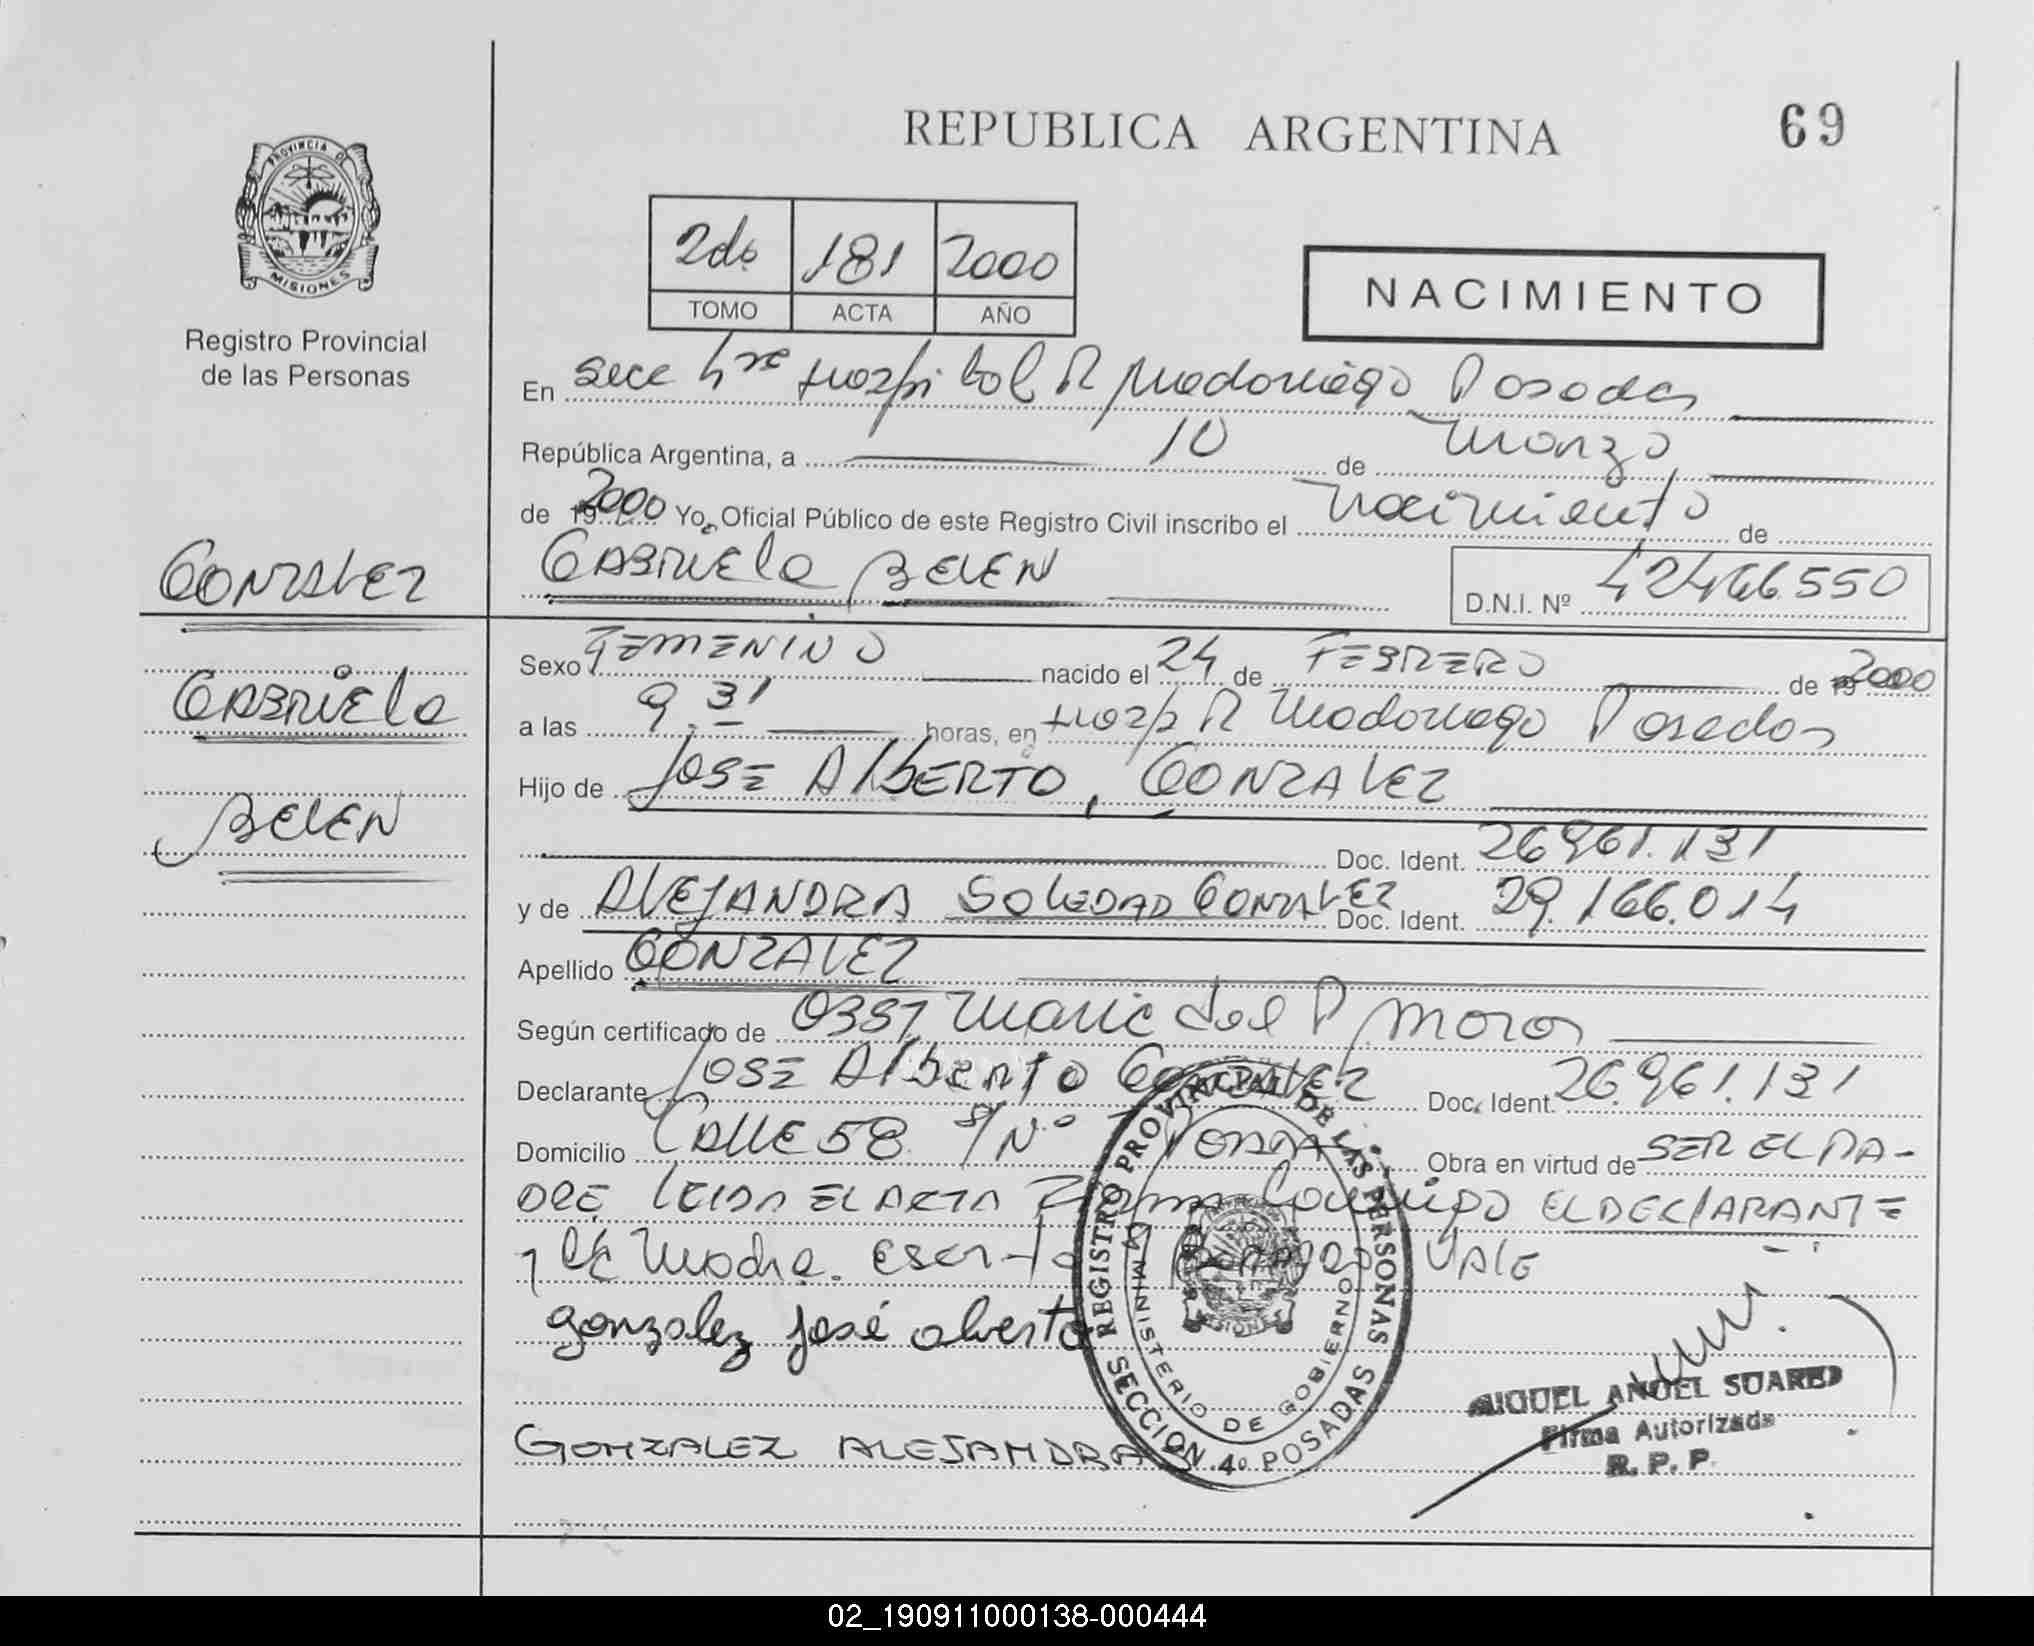 REPUBLICA ARGENTINA
69
PROVINCIA DE
MISIONES
Registro Provincial
de las Personas
2do 181 2000
TOMO ACTA AÑO
NACIMIENTO
En Secc Hospital R Madariaga Posadas
República Argentina, a 10 de Marzo
de 19 2000 Yo, Oficial Público de este Registro Civil inscribo el Nacimiento de
GONZALEZ
GABRIELA BELEN
D.N.I. Nº 42466550
Sexo FEMENINO nacido el 24 de FEBRERO de 19 2000
GABRIELA
a las 9.31 horas, en Hosp R Madariaga Posadas
Hijo de JOSE ALBERTO, GONZALEZ
BELEN
Doc. Ident. 26961.131
y de ALEJANDRA SOLEDAD GONZALEZ Doc. Ident. 29.166.014
Apellido GONZALEZ
Según certificado de Maria del P Moros
Declarante JOSE Alberto GONZALEZ Doc. Ident. 26.961.131
Domicilio CALLE 58 S/Nº Obra en virtud de SER EL PA-
DRE LEIDA EL ACTA Firma Conmigo EL DECLARANTE
y la Madre. VALE
gonzalez josé alverto
GONZALEZ ALEJANDRA S.
REGISTRO PROVINCIAL DE LAS PERSONAS
SECCION 4º POSADAS
MINISTERIO DE GOBIERNO
MIGUEL ANGEL SUAREZ
Firma Autorizada
R. P. P.
02_190911000138-000444